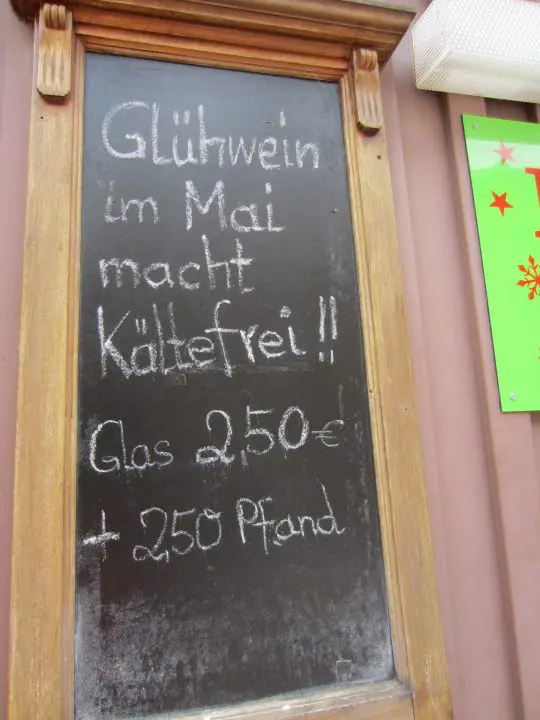 Glühwein
im Mai
macht
Kältefrei!!
Glas 2,50€
+ 2,50 Pfand